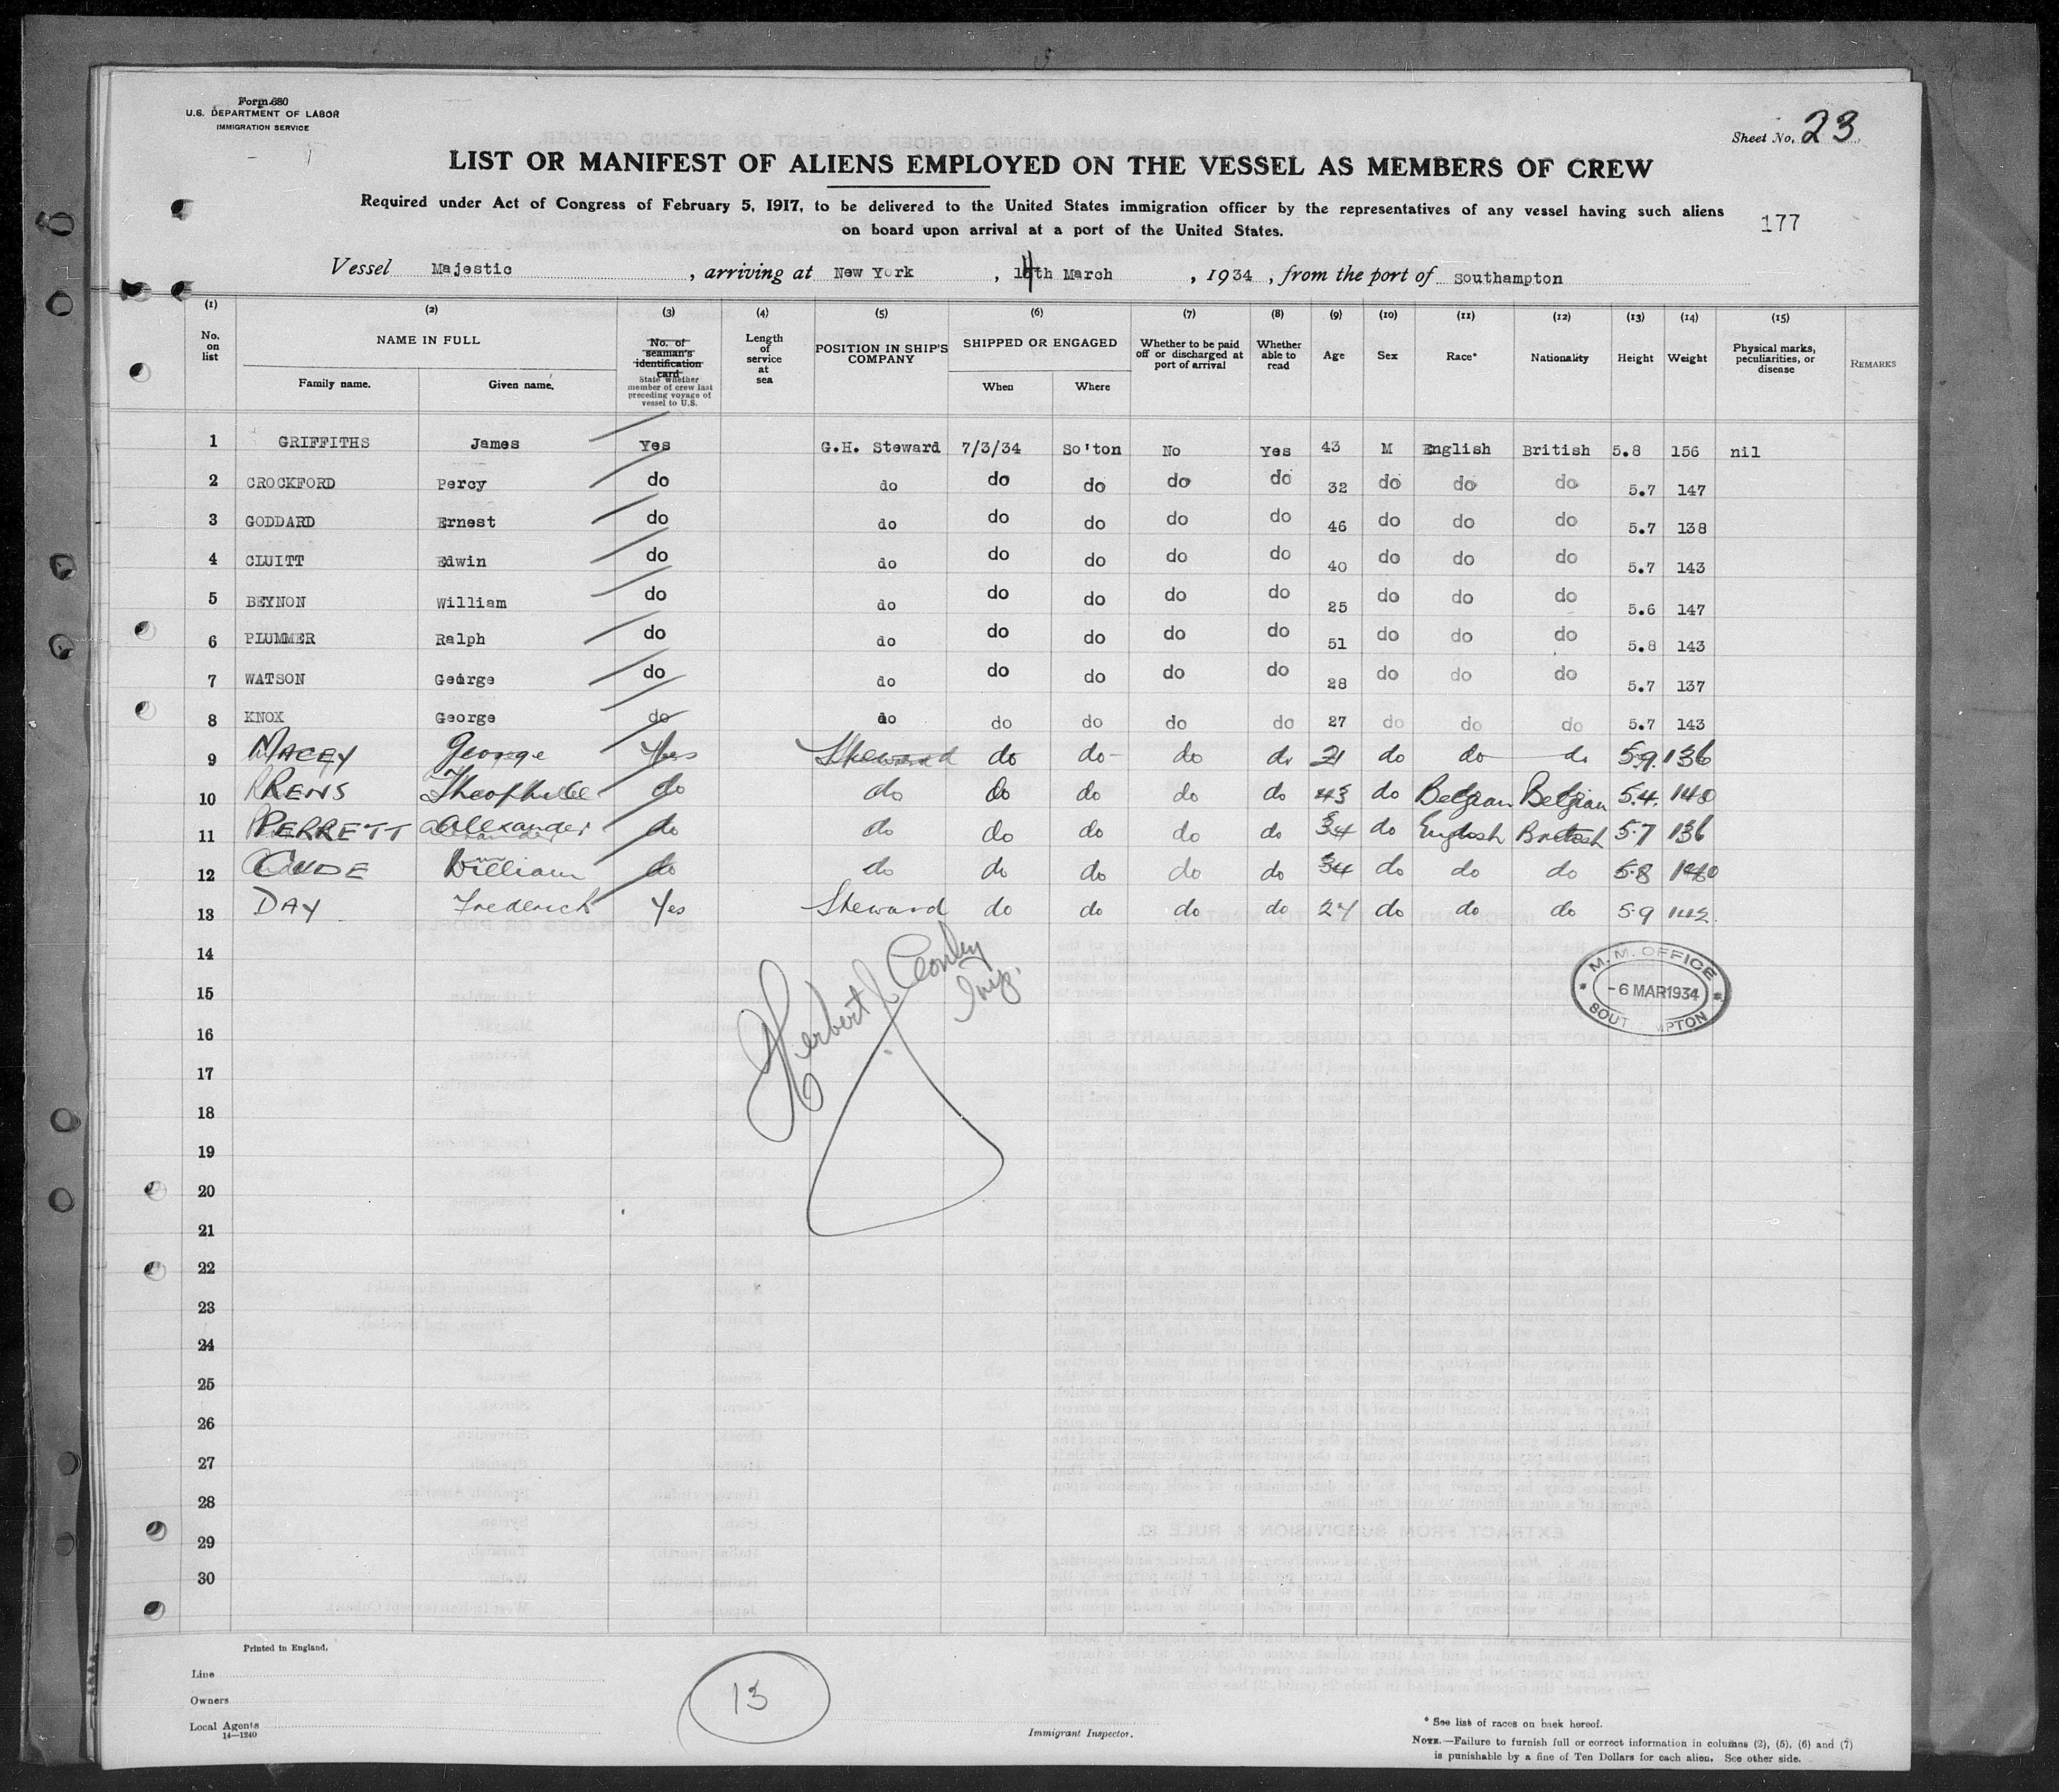 Form 680
U.S. DEPARTMENT OF LABOR
IMMIGRATION SERVICE
Sheet No. 23
LIST OR MANIFEST OF ALIENS EMPLOYED ON THE VESSEL AS MEMBERS OF CREW
Required under Act of Congress of February 5, 1917, to be delivered to the United States immigration officer by the representatives of any vessel having such aliens
on board upon arrival at a port of the United States.
177
Vessel Majestic, arriving at New York, 14th March, 1934, from the port of Southampton
(1) (2) (3) (4) (5) (6) (7) (8) (9) (10) (11) (12) (13) (14) (15)
No. on list NAME IN FULL Family name. Given name. No. of seaman's identification card State whether member of crew last preceding voyage of vessel to U.S. Length of service at sea POSITION IN SHIP'S COMPANY SHIPPED OR ENGAGED When Where Whether to be paid off or discharged at port of arrival Whether able to read Age Sex Race* Nationality Height Weight Physical marks, peculiarities, or disease REMARKS
1 GRIFFITHS James Yes G.H. Steward 7/3/34 So'ton No Yes 43 M English British 5.8 156 nil
2 CROCKFORD Percy do do do do do do 32 do do do 5.7 147
3 GODDARD Ernest do do do do do do 46 do do do 5.7 138
4 CLUITT Edwin do do do do do do 40 do do do 5.7 143
5 BEYNON William do do do do do do 25 do do do 5.6 147
6 PLUMMER Ralph do do do do do do 51 do do do 5.8 143
7 WATSON George do do do do do do 28 do do do 5.7 137
8 KNOX George do do do do do do 27 do do do 5.7 143
9 MACEY George Yes Steward do do do do 21 do do do 5.9. 136
10 RENS Theophille do do do do do do 43 do Belgian Belgian 5.4. 140
11 PERRETT Alexander do do do do do do 34 do English British 5.7 136
12 CUDE William do do do do do do 34 do do do 5.8 140
13 DAY Frederick Yes Steward do do do do 27 do do do 5.9 142
14
15
16
17
18
19
20
21
22
23
24
25
26
27
28
29
30
Herbert J. Insp.
M.M. OFFICE
-6 MAR 1934
SOUT MPTON
Printed in England.
Line
Owners
Local Agents
14—1240
13
Immigrant Inspector.
* See list of races on back hereof.
NOTE.—Failure to furnish full or correct information in columns (2), (5), (6) and (7)
is punishable by a fine of Ten Dollars for each alien. See other side.